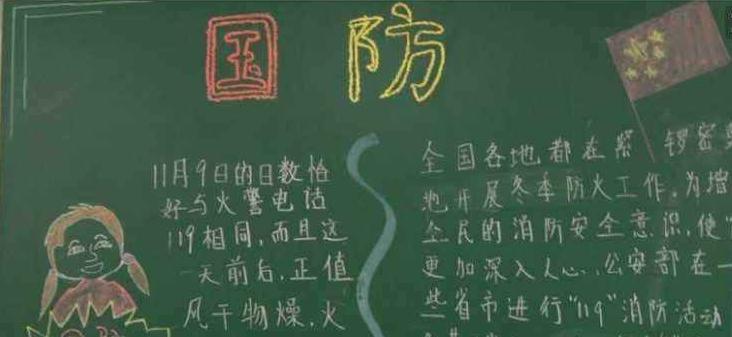 国防
11月9日的日数恰
好与火警电话
119相同,而且这
一天前后,正值
风干物燥,火
全国各地都在紧锣密
地开展冬季防火工作,为增
全民的消防安全意识,使"
更加深入人心,公安部在一
些省市进行"119"消防活动